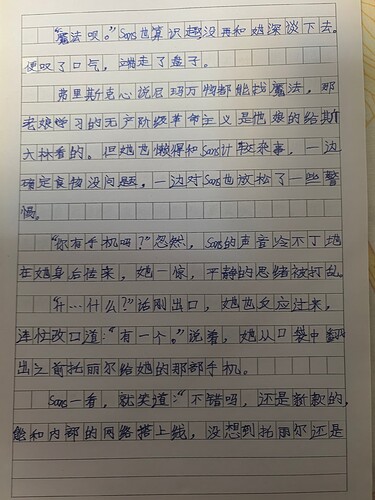 “魔法呗。”Sans也算识趣没再和她深谈下去。
便叹了口气，端走了盘子。
弗里斯克心说尼玛万物都能找魔法，那
老娘学习的无产阶级革命主义是他娘的给斯
大林看的。但她也懒得和Sans计较杂事，一边
确定食物没问题，一边对Sans也放松了一些警
惕。
“你有手机吗？”忽然，Sans的声音冷不丁地
在她身后传来，她一惊，平静的思绪被打乱。
“什…什么？”话刚出口，她也反应过来，
连忙改口道：“有一个。”说着，她从口袋中翻
出之前托丽尔给她的那部手机。
Sans一看，就笑道：“不错吗，还是新款的，
能和内部的网络搭上线，没想到托丽尔还是